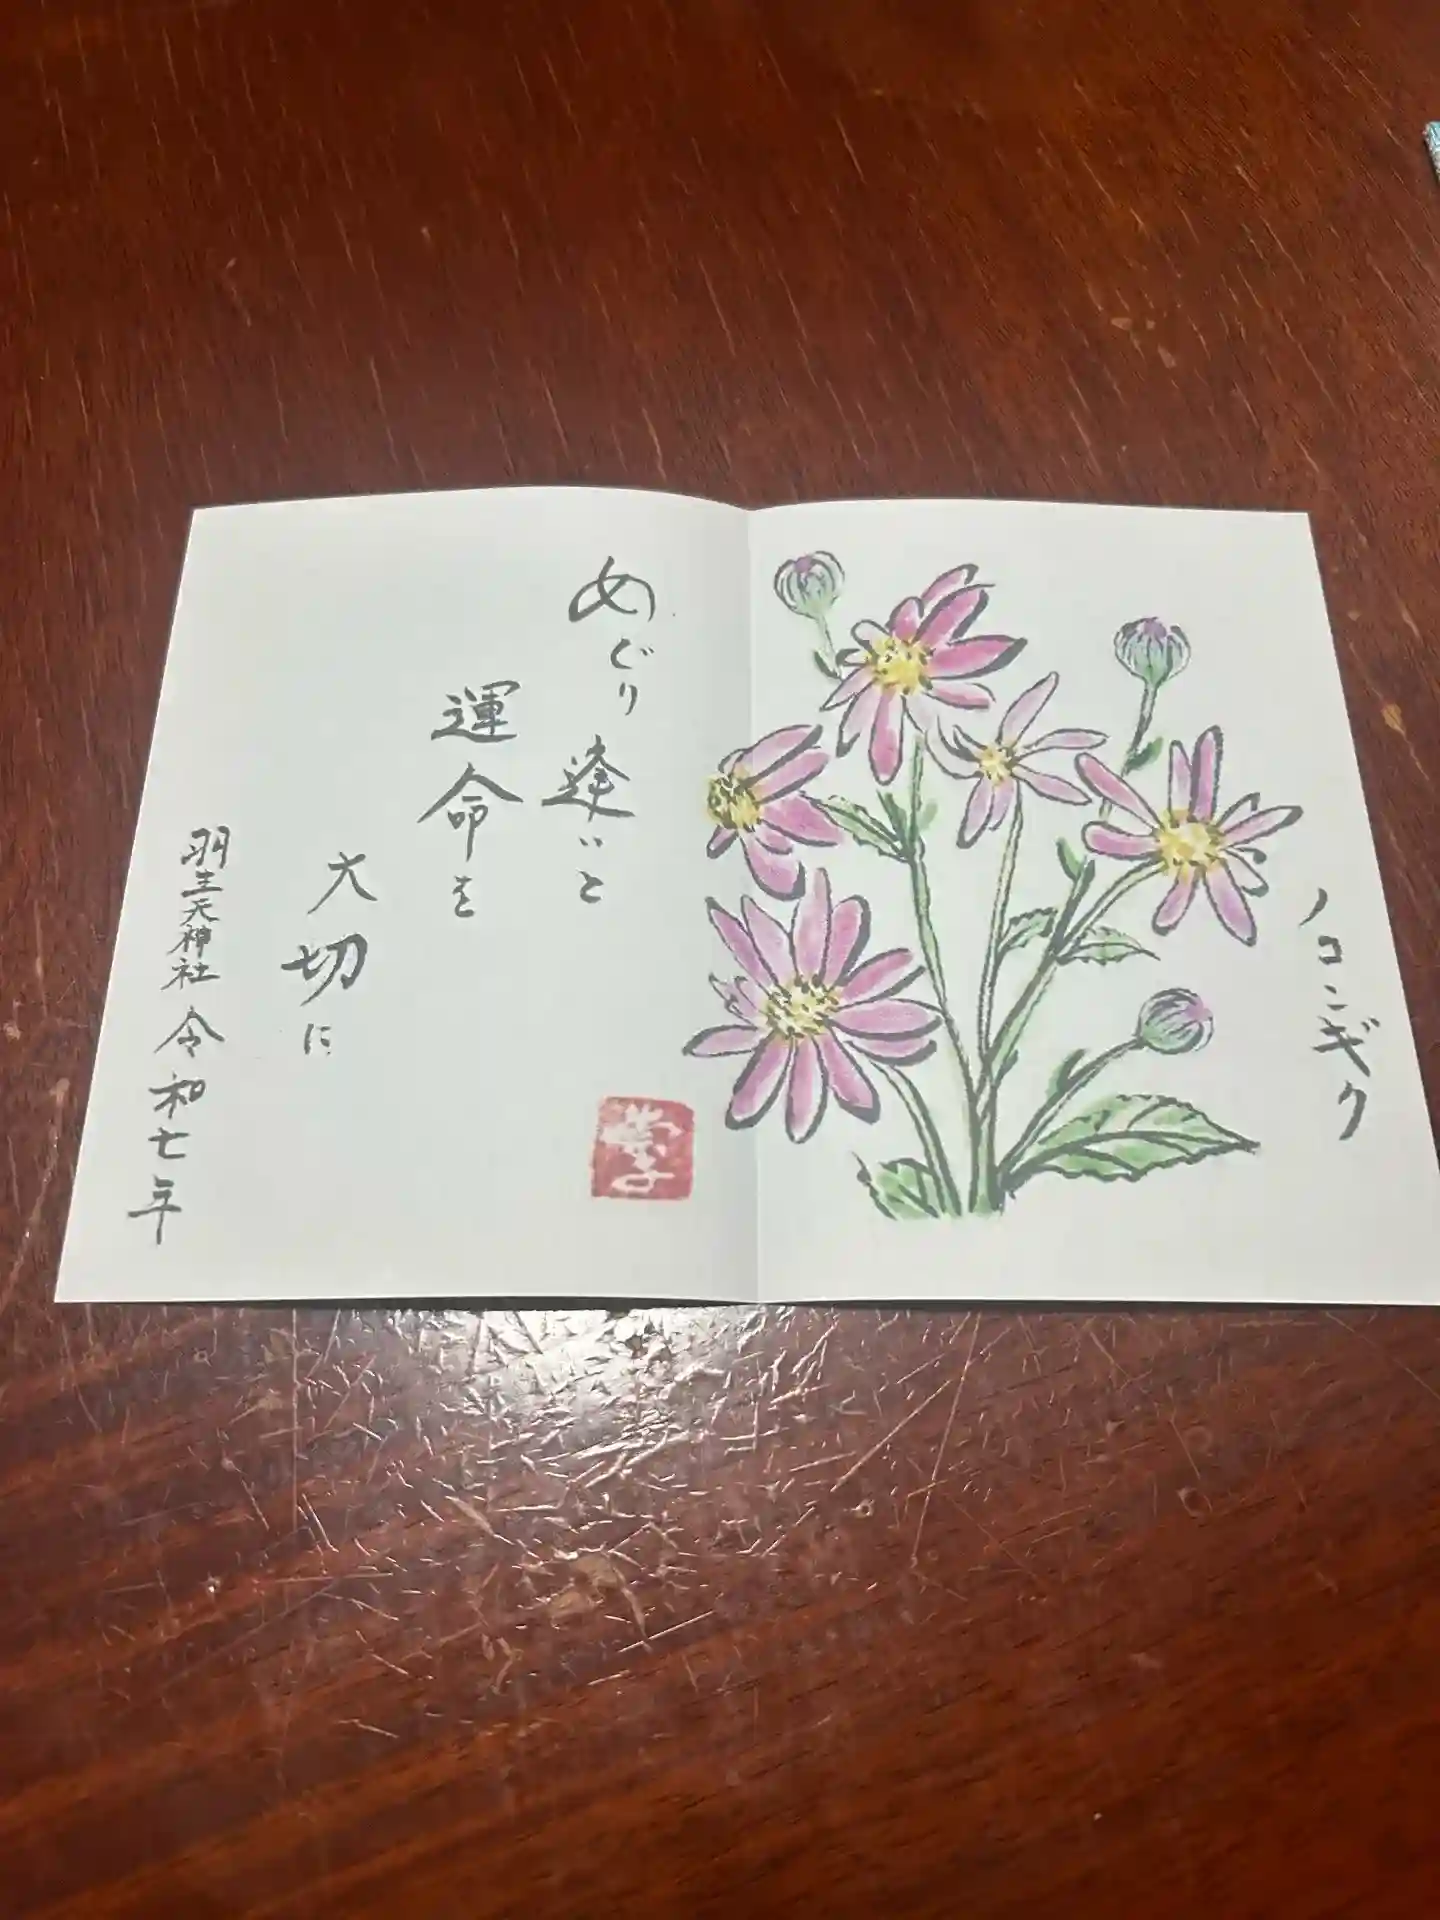 ノコンギク
めぐり逢いと
運命を
大切に
羽生天神社 令和七年